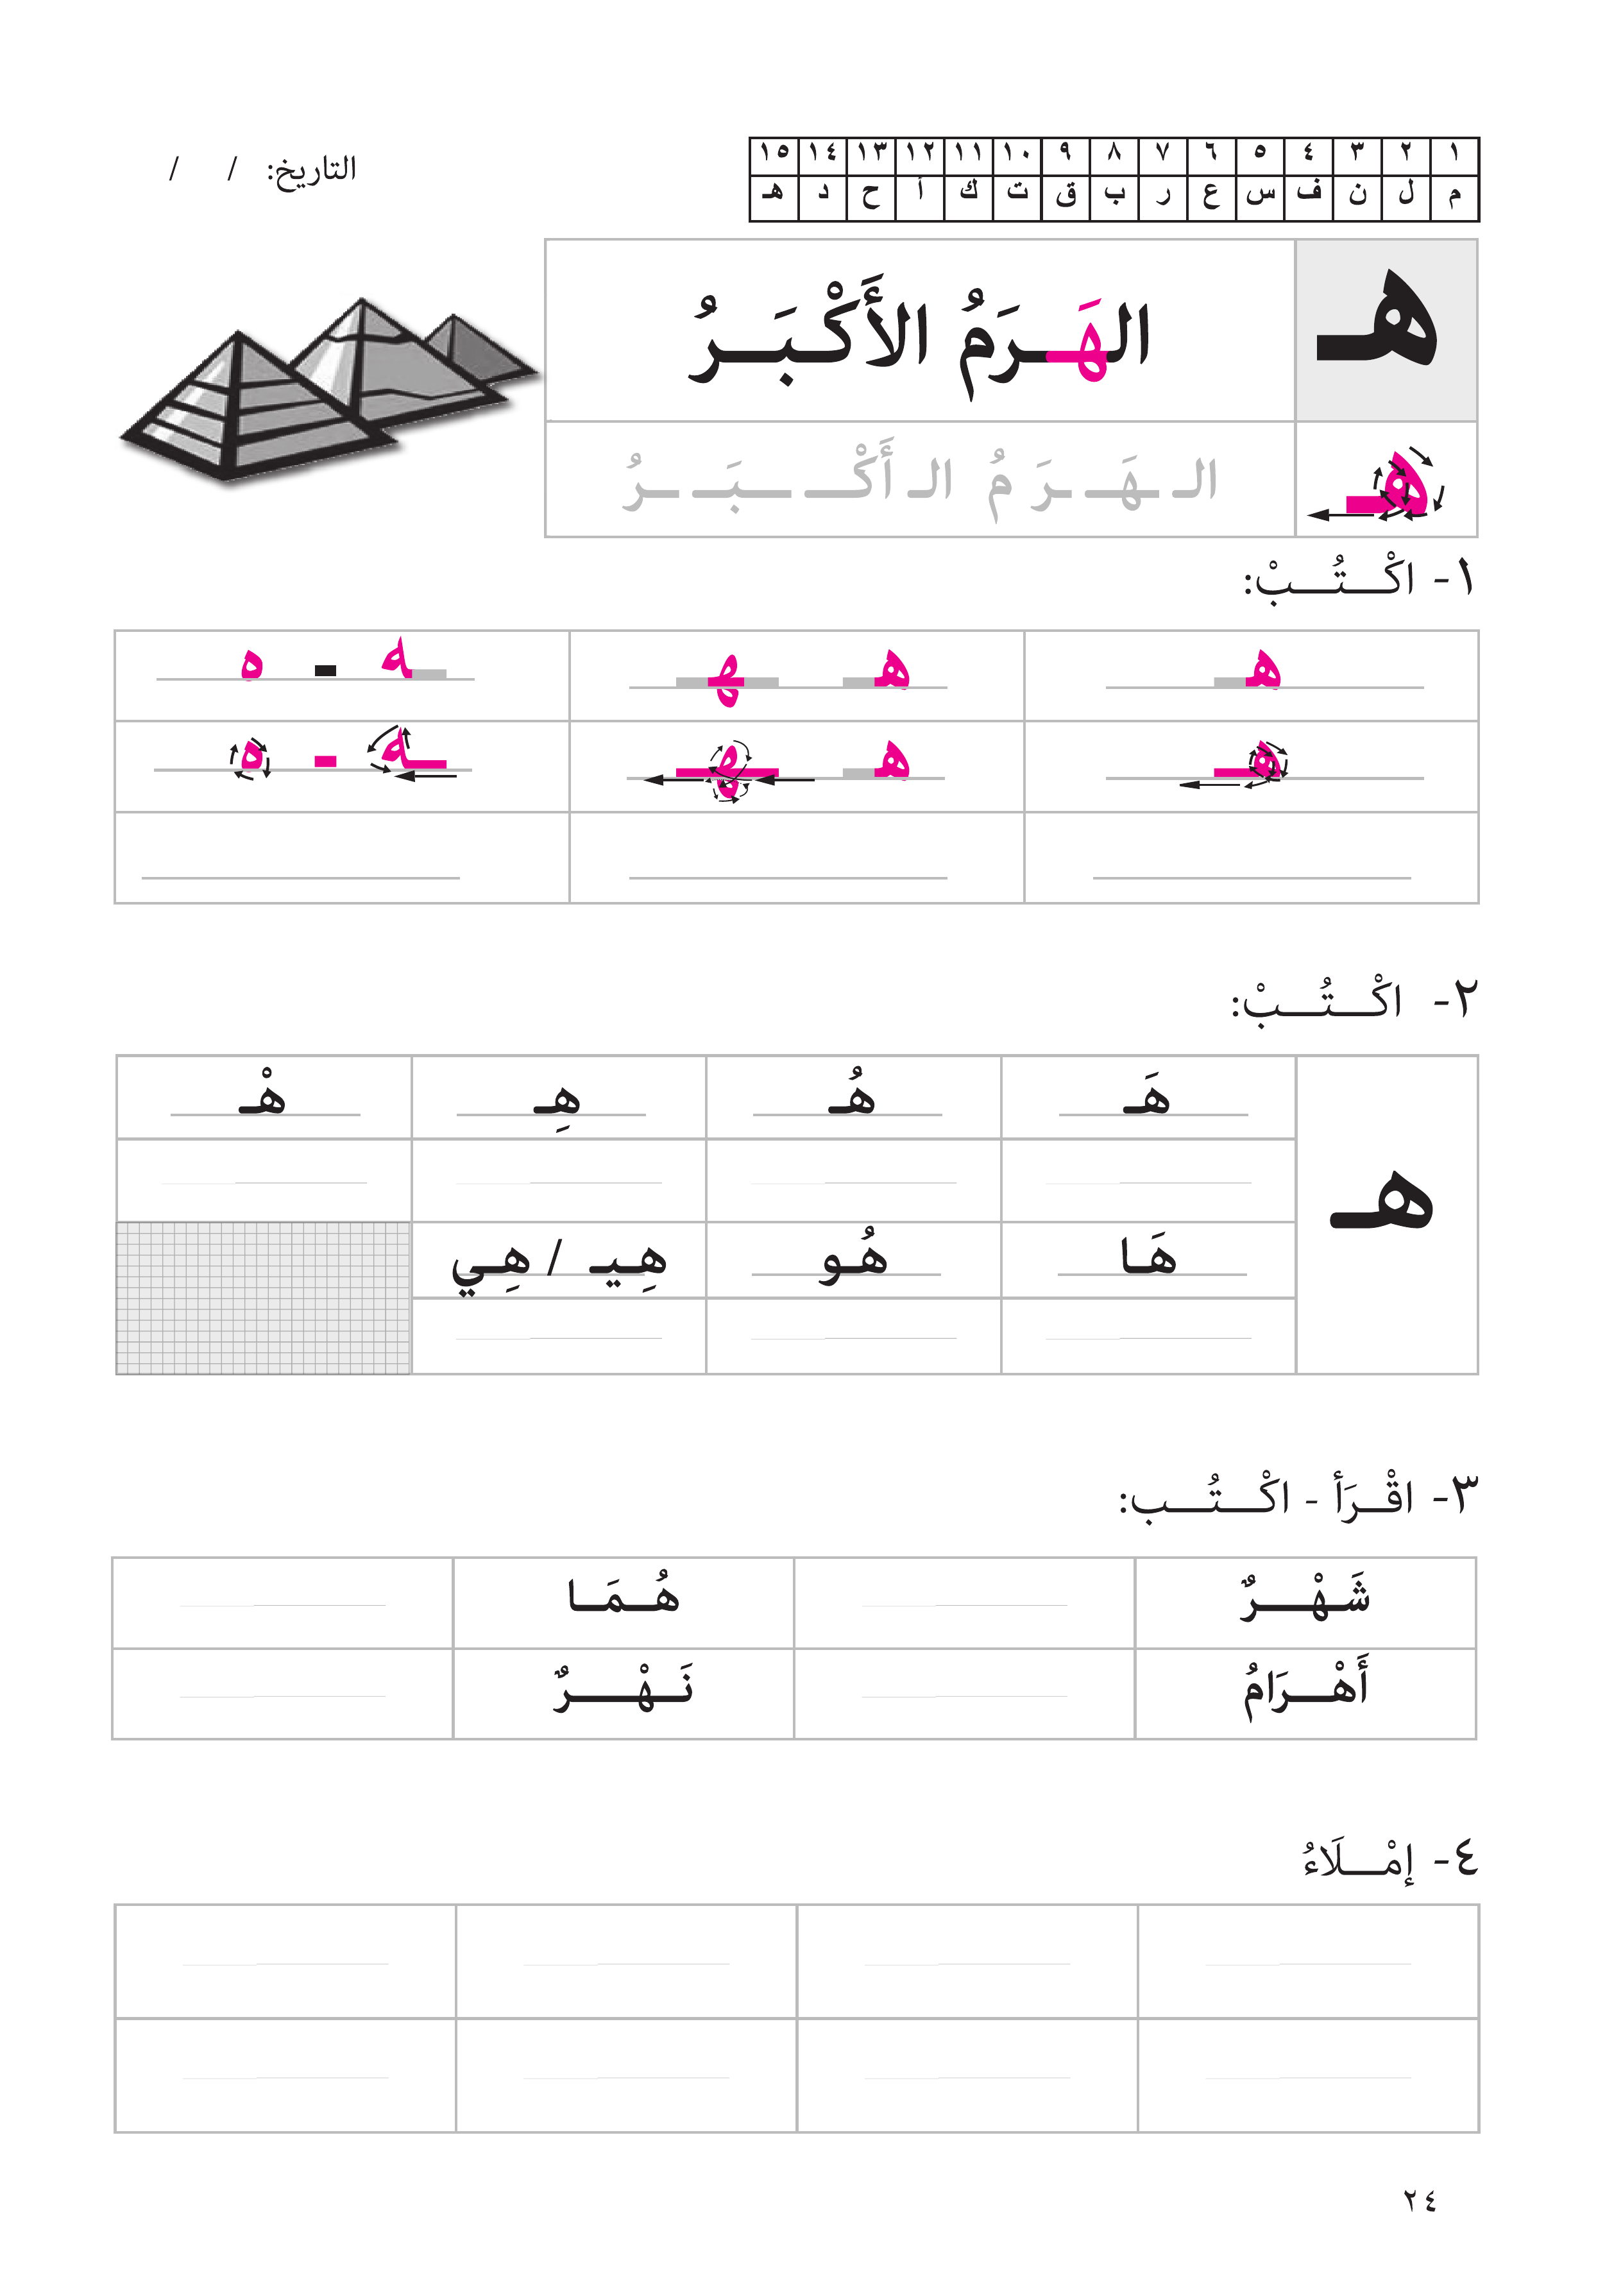 التاريخ: / /
١ ٢ ٣ ٤ ٥ ٦ ٧ ٨ ٩ ١٠ ١١ ١٢ ١٣ ١٤ ١٥
م ل ن ف س ع ر ب ق ت ك أ ح د هـ
هـ الهَـرَمُ الأَكْـبَـرُ
هـ الـ ـهَـ ـرَ مُ الـ أَكْـ ـبَـ ـرُ
١- اكْـــتُـــبْ:
هـ هـ ـهـ ـه - ه
هـ هـ ـهـ ـه - ه
٢- اكْـــتُـــبْ:
هـ
هَـ هُـ هِـ هْـ
هَـا هُـو هِـيـ / هِـي
٣- اقْــرَأ - اكْـــتُـــب:
شَـهْـــرٌ هُـمَـا
أَهْـــرَامُ نَـهْـــرٌ
٤- إمْـــلَاءُ
٢٤